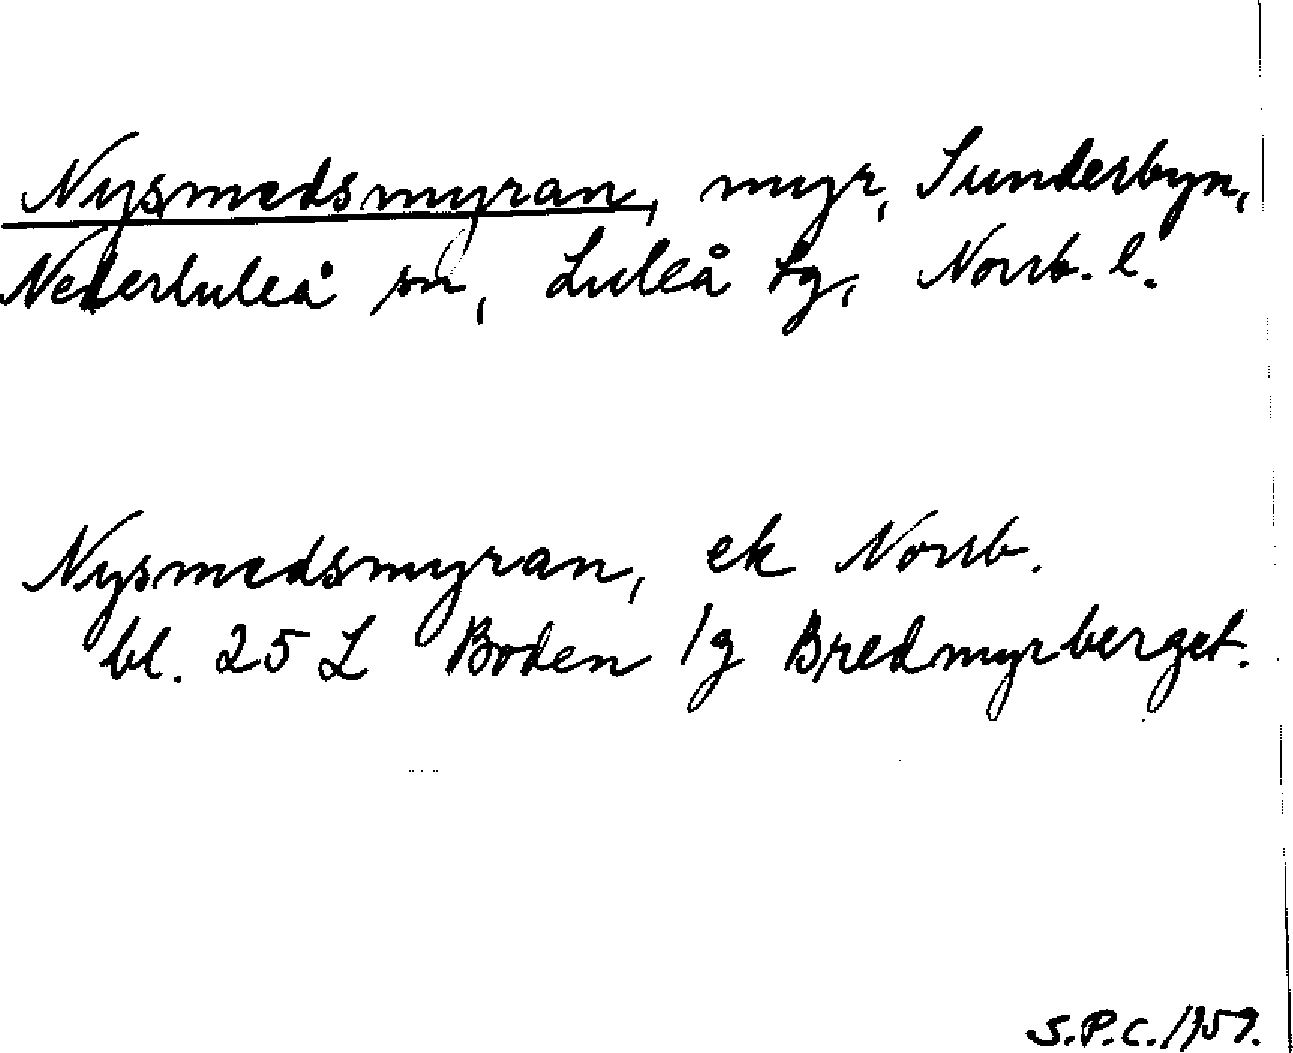 Nysmedsmyran, myr, Sunderbyn,
Nederluleå sn, Luleå tg, Norrb. l.
Nysmedsmyran, ek Norrb.
bl. 25 L Boden 1g Bredmyrberget.
S.P.C. 1959.